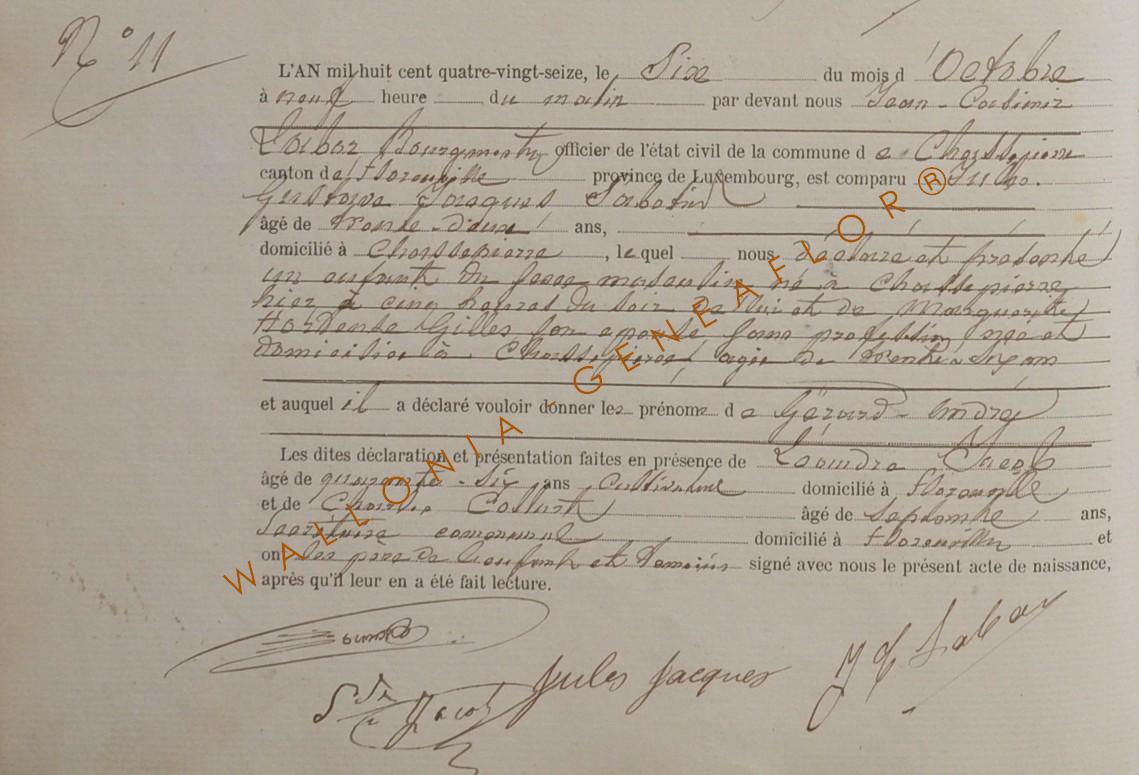 N° 11
L'AN mil huit cent quatre-vingt-seize, le Six du mois d'Octobre
à neuf heure du matin par devant nous Jean-Casimir
Labar Bourgmestre officier de l'état civil de la commune de Chassepierre
canton de Florenville province de Luxembourg, est comparu Jules
Gustave Jacques
âgé de trente-deux ans,
domicilié à Chassepierre, lequel nous déclare et présente
un enfant du sexe masculin né à Chassepierre
hier à cinq heures du soir de lui et de Marguerite
Hortense Gilles son épouse sans profession, née et
domiciliée à Chassepierre, agée de trente
et auquel il a déclaré vouloir donner les prénoms de Gérard-André
Les dites déclaration et présentation faites en présence de Léandre Jacob
âgé de quarante-six ans cultivateur domicilié à Florenville
et de Charles Collart âgé de septante ans,
Secrétaire communal domicilié à Florenville et
ont les père de l'enfant et témoins signé avec nous le présent acte de naissance,
après qu'il leur en a été fait lecture.
Jacob
Jules Jacques
J C Labar
WALLONIA - GENEAFLOR®